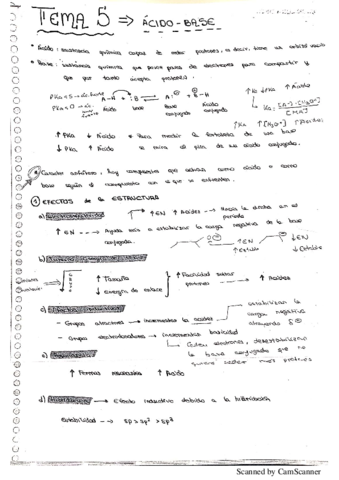 TEMA 5 ⇒ ÁCIDO-BASE
• Ácido: sustancia química capaz de ceder protones, es decir, tiene un orbital vacío
• Base: sustancia química que posee pares de electrones para compartir y
que por tanto acepta protones.
A-H + :B ⇌ A + B-H
Ácido base Base conjugada Ácido conjugado
↑ Ka ↓ PKa ↑ Ácido
↑ PKa ↓ Ácido • Para medir la fortaleza de una base
↓ PKa ↑ Ácido se mira el pKa de su ácido conjugado.
Caracter anfótero: hay compuestos que actúan como ácido o como
base según el compuesto con el que se enfrentan.
① EFECTOS de la ESTRUCTURA
a) Electronegatividad
↑ EN / Acidez → Hacia la drcha en el
periodo
↑ EN → Ayuda más a estabilizar la carga negativa de la base
conjugada.
↑ EN
↓ EN
b)
↑ Tamaño
↓ Energía de enlace
↑ Facilidad soltar
protones
↑ Acidez
c)
- Grupos atractores → incrementan la acidez
estabilizan la
carga negativa
atrayendo
- Grupos electrodonadores → incrementan basicidad
Ceden electrones, desestabilizando
la base conjugada que no
quiere ceder más protones
e)
↑ Formas resonantes ↑ Ácido
d) Hibridación → Efecto inductivo debido a la hibridación
Estabilidad → sp > sp² > sp³
Scanned by CamScanner